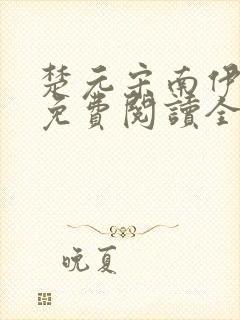 楚元宋南伊
免費閱讀全
晚夏